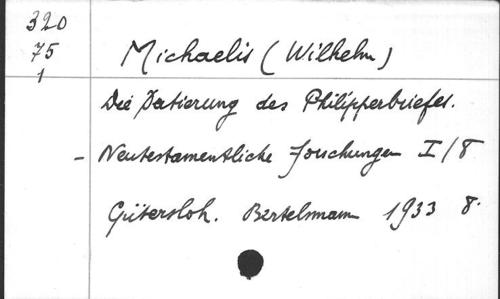 320
75
1
Michaelis (Wilhelm)
Die Datierung des Philipperbriefes.
- Neutestamentliche Forschungen I/8
Gütersloh. Bertelsmann 1933 8.